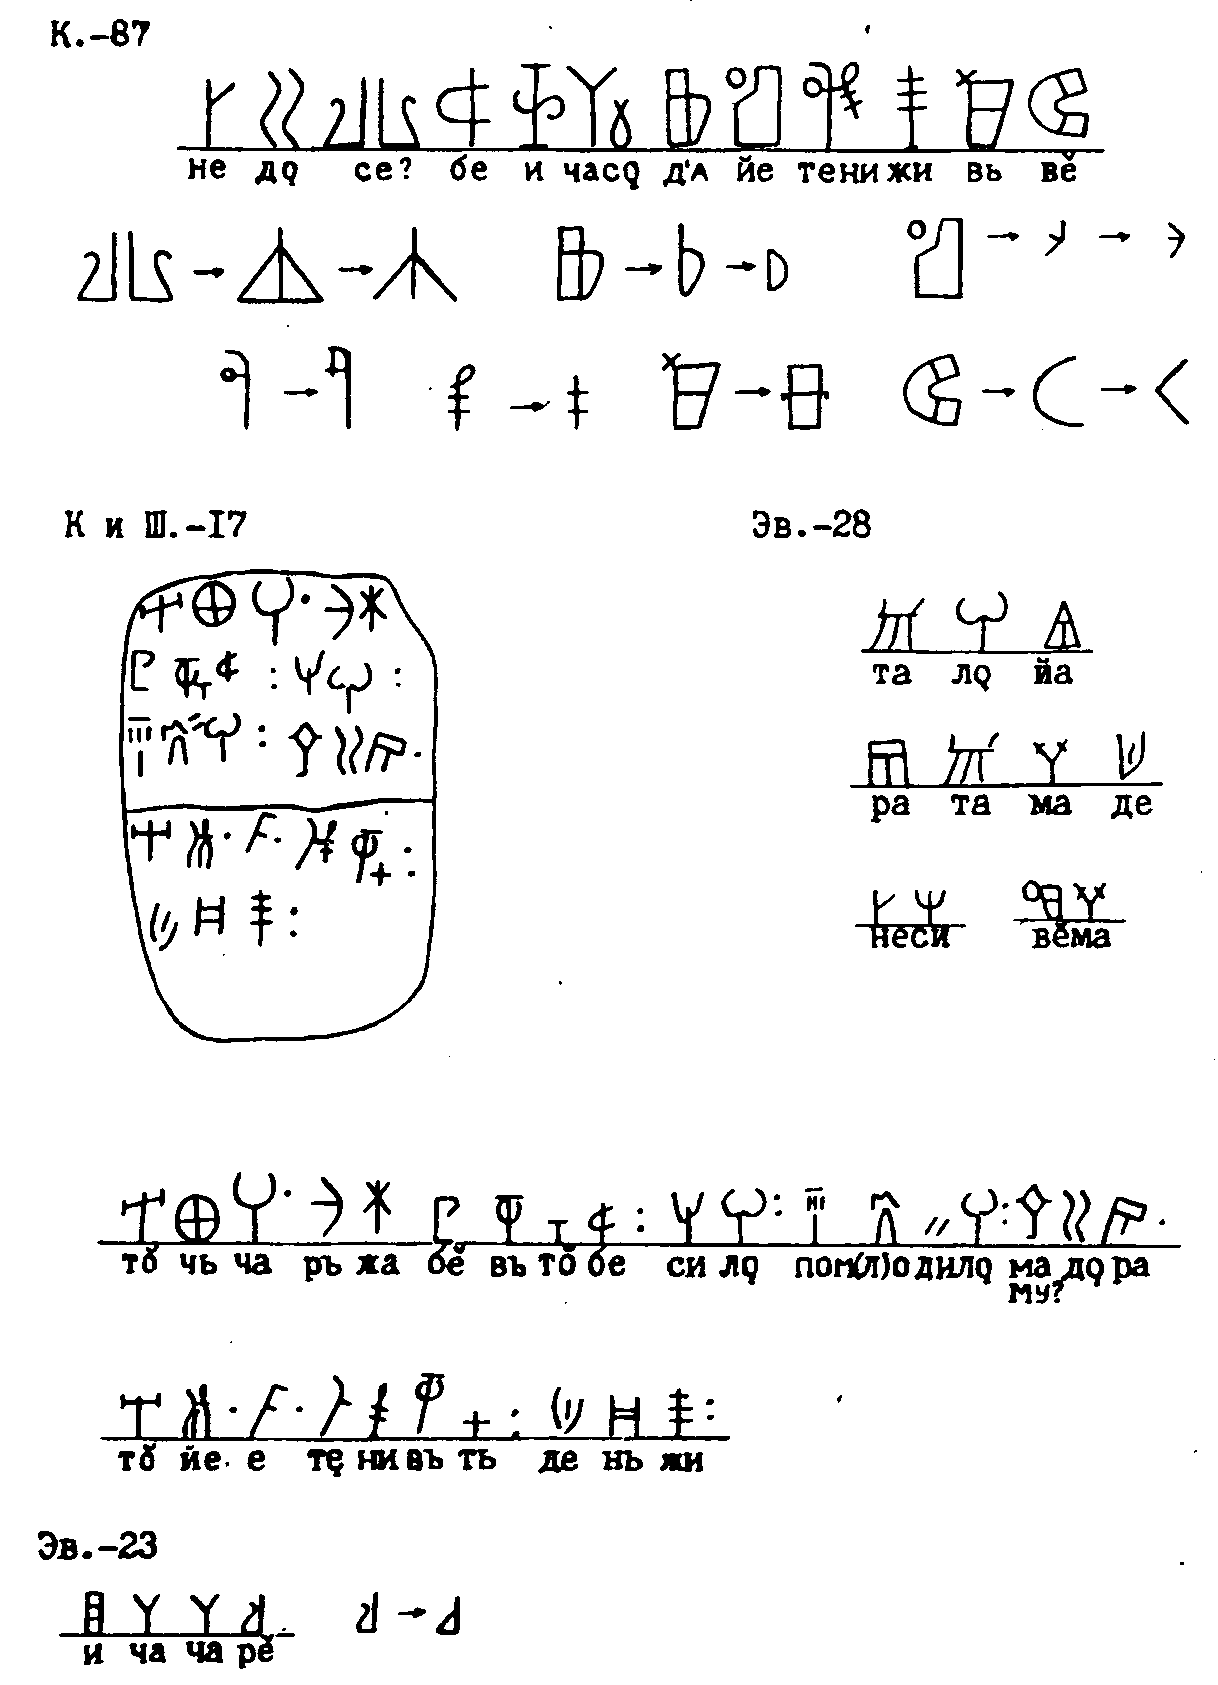 К.-87
не дǫ се? бе и часǫ д'А йе тени жи вь вĕ
К и Ш.-I7
Эв.-28
та лǫ йа
ра та ма де
неси вĕма
тŏ чь ча ръ жа бĕ въ тŏ бе си лǫ пом(л)о дилǫ ма дǫ ра
му?
тŏ йе. е тę ни въ ть де нь жи
Эв.-23
и ча ча рĕ